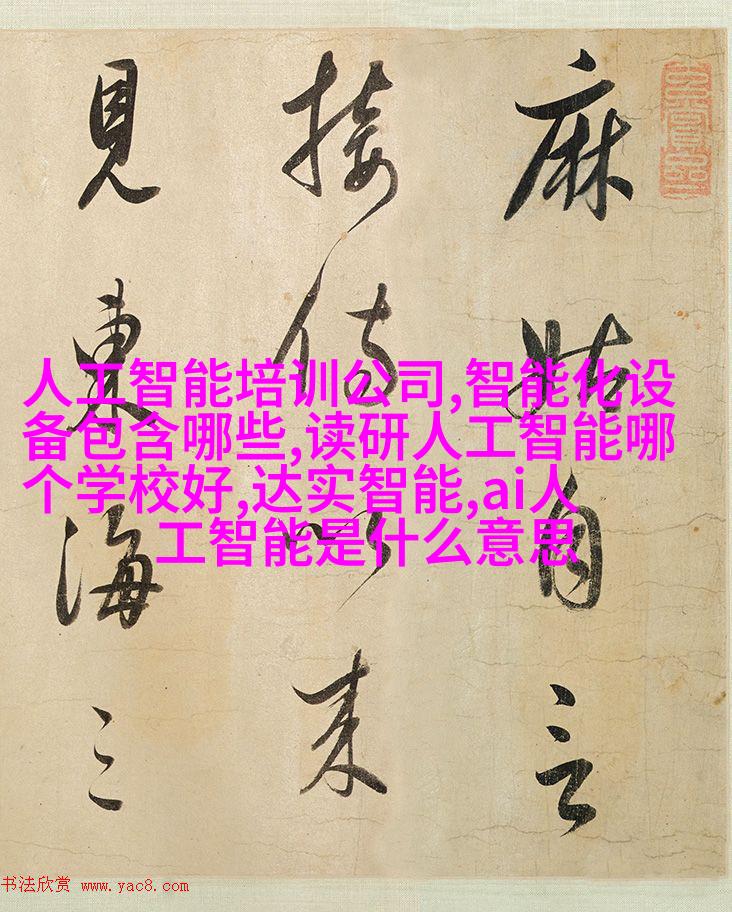 麻姑自言
接侍以来
見東海三
人工智能培训公司,智能化设
备包含哪些,读研人工智能哪
个学校好,达实智能,ai人
工智能是什么意思
书法欣赏 www.yac8.com